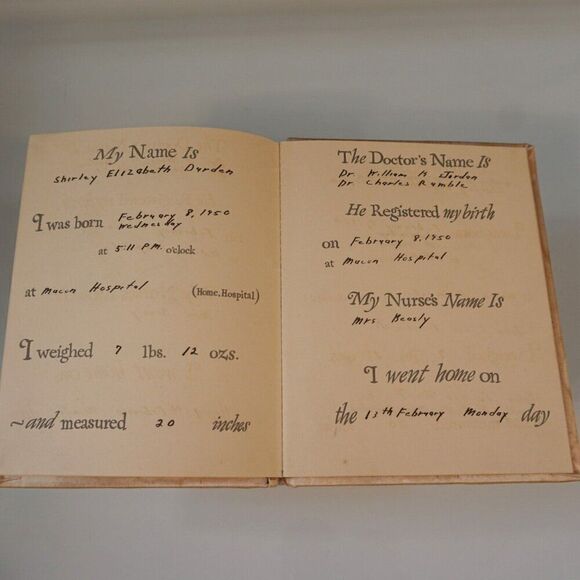 My Name Is
Shirley Elizabeth Darden
I was born February 8, 1950
Wednesday
at 5:11 P.M. o'clock
at Macon Hospital (Home, Hospital)
I weighed 7 lbs. 12 ozs.
~and measured 20 inches
The Doctor's Name Is
Dr. William H Jordan
Dr. Charles Rumble
He Registered my birth
on February 8, 1950
at Macon Hospital
My Nurse's Name Is
Mrs. Beasly
I went home on
the 13th February Monday day